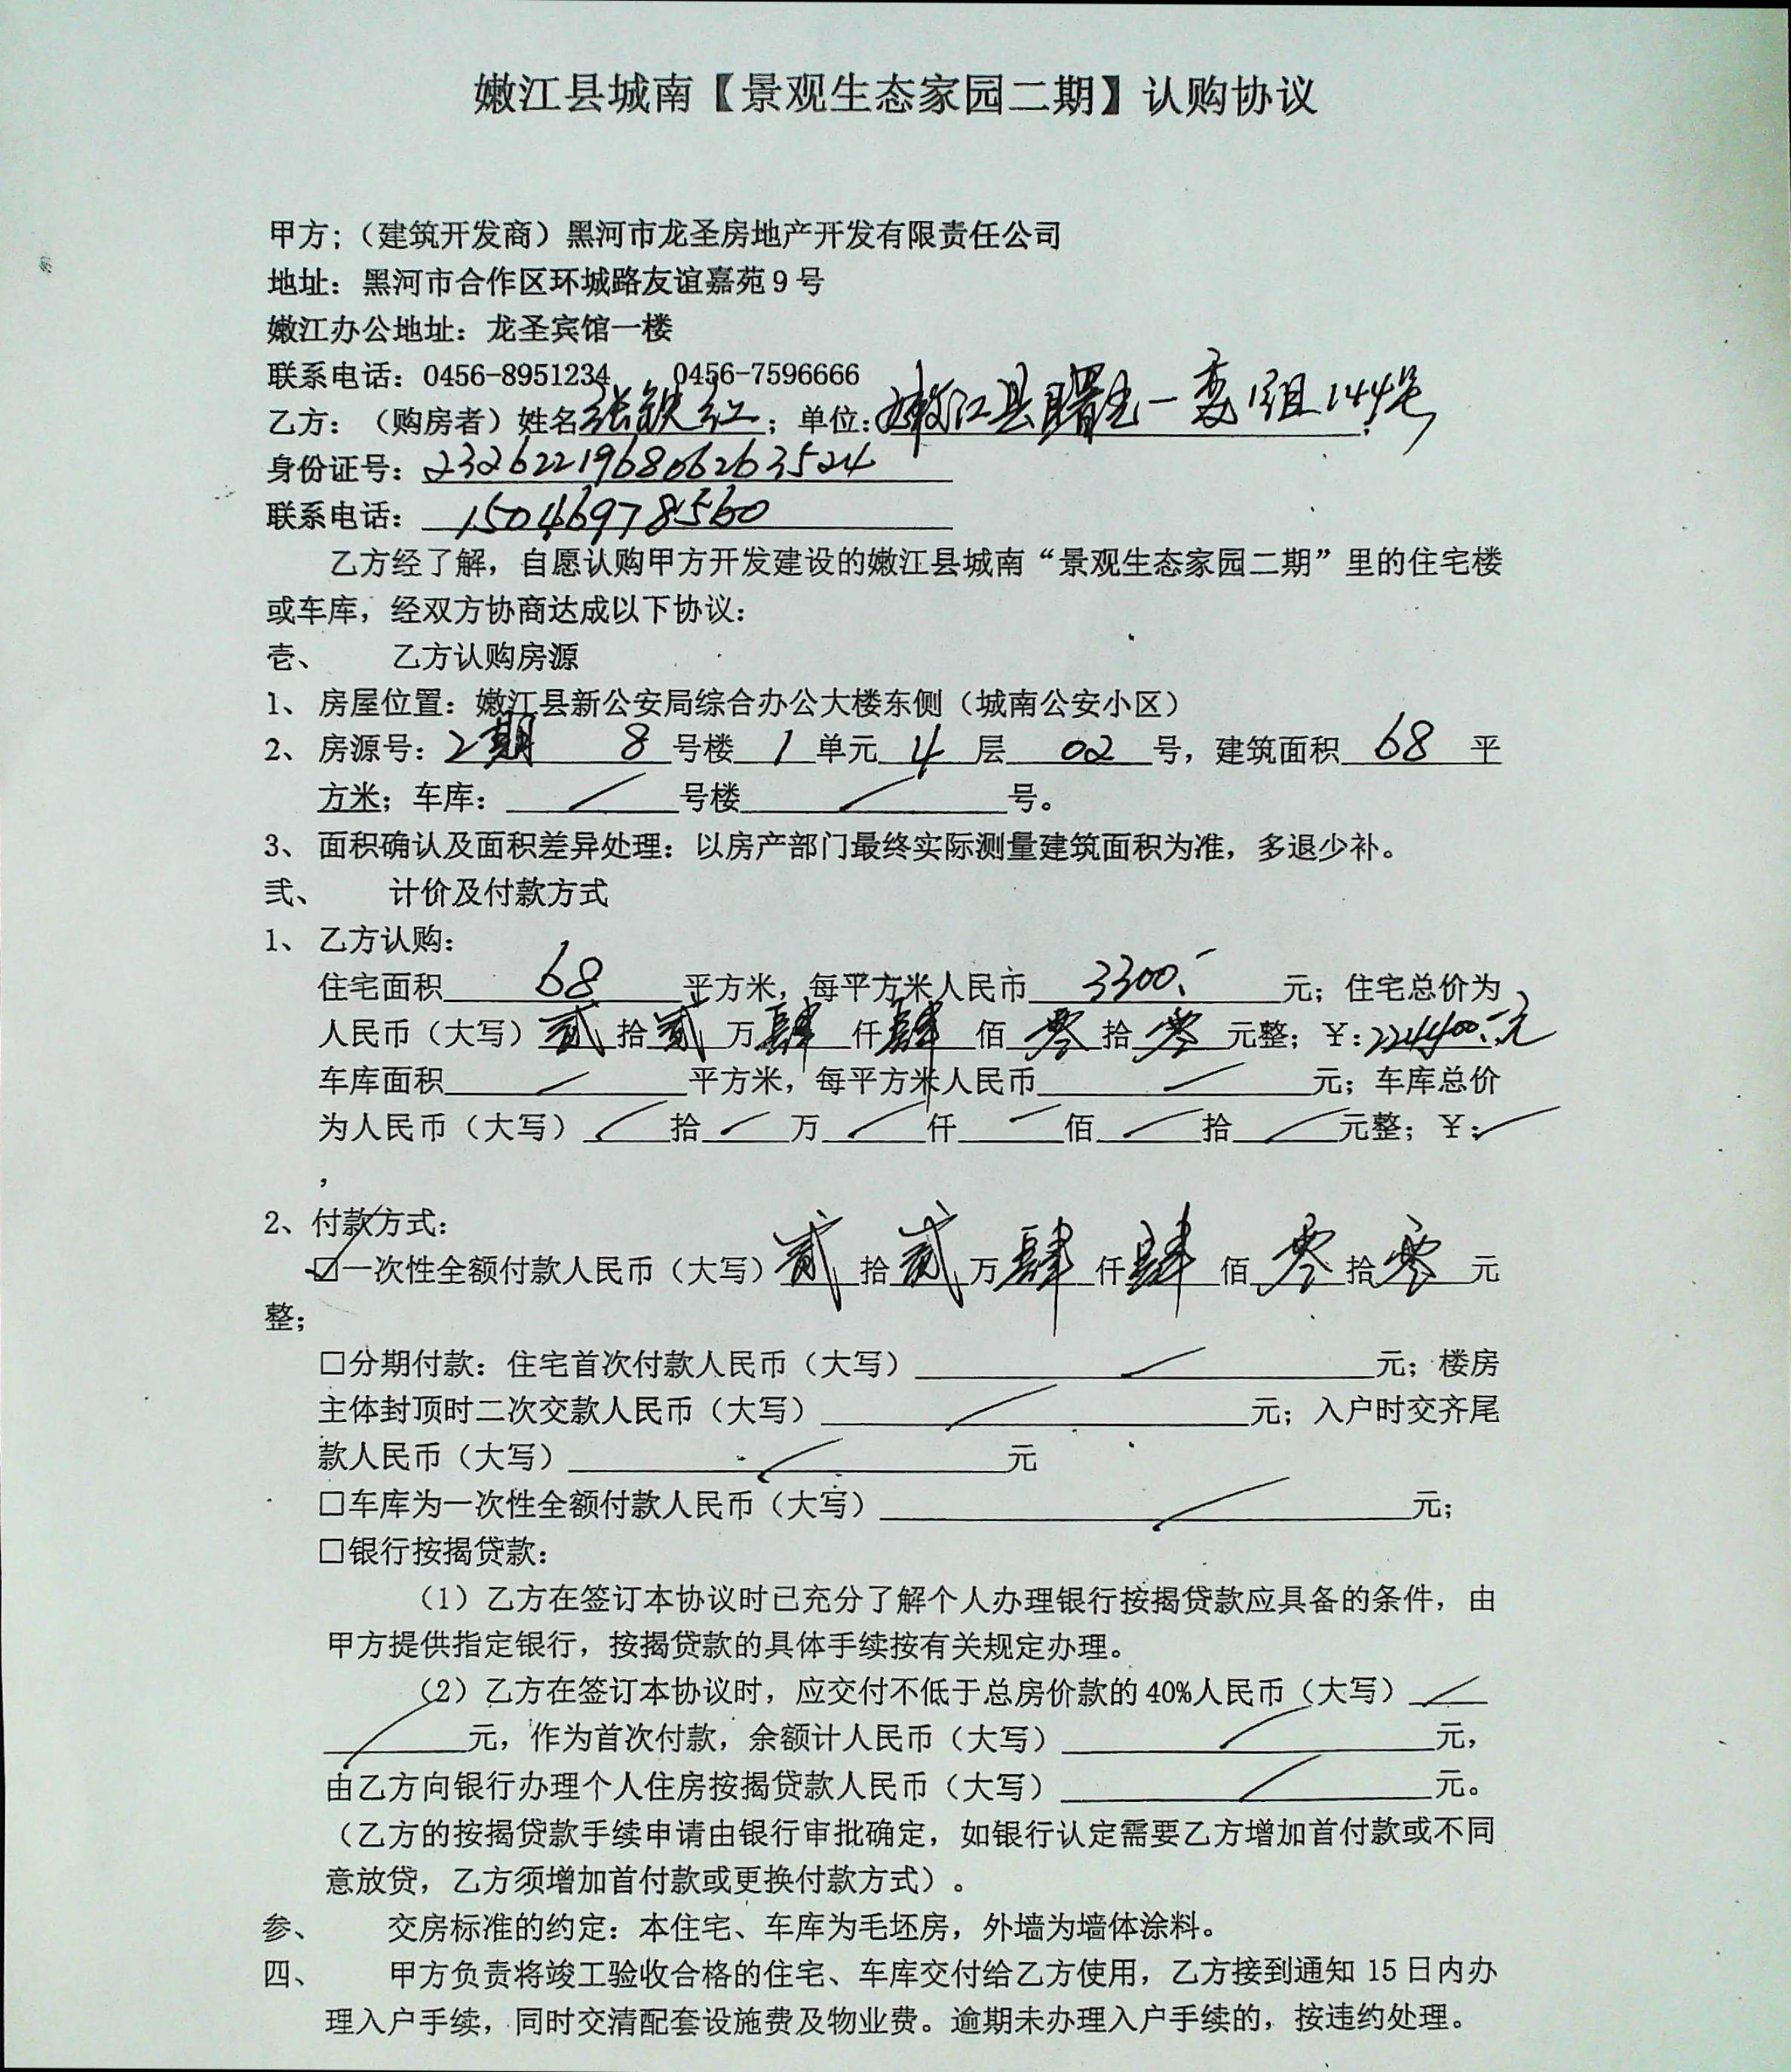 嫩江县城南【景观生态家园二期】认购协议
甲方；（建筑开发商）黑河市龙圣房地产开发有限责任公司
地址：黑河市合作区环城路友谊嘉苑9号
嫩江办公地址：龙圣宾馆一楼
联系电话：0456-8951234 0456-7596666
乙方：（购房者）姓名张铁红；单位：嫩江县曙光一委13组144号；
身份证号：232622196806263524
联系电话：15046978560
乙方经了解，自愿认购甲方开发建设的嫩江县城南“景观生态家园二期”里的住宅楼
或车库，经双方协商达成以下协议：
壱、 乙方认购房源
1、房屋位置：嫩江县新公安局综合办公大楼东侧（城南公安小区）
2、房源号：2期 8号楼1单元4层02号，建筑面积68平
方米；车库：／号楼／号。
3、面积确认及面积差异处理：以房产部门最终实际测量建筑面积为准，多退少补。
弐、 计价及付款方式
1、乙方认购：
住宅面积68平方米，每平方米人民币3300.-元；住宅总价为
人民币（大写）贰拾贰万肆仟肆佰零拾零元整；￥:224400.-元，
车库面积／平方米，每平方米人民币／元；车库总价
为人民币（大写）／拾／万／仟／佰／拾／元整；￥:／
，
2、付款方式：
☑一次性全额付款人民币（大写）贰拾贰万肆仟肆佰零拾零元
整；
□分期付款：住宅首次付款人民币（大写）／元；楼房
主体封顶时二次交款人民币（大写）／元；入户时交齐尾
款人民币（大写）／元
□车库为一次性全额付款人民币（大写）／元；
□银行按揭贷款：
（1）乙方在签订本协议时已充分了解个人办理银行按揭贷款应具备的条件，由
甲方提供指定银行，按揭贷款的具体手续按有关规定办理。
（2）乙方在签订本协议时，应交付不低于总房价款的40%人民币（大写）／
／元，作为首次付款，余额计人民币（大写）／元，
由乙方向银行办理个人住房按揭贷款人民币（大写）／元。
（乙方的按揭贷款手续申请由银行审批确定，如银行认定需要乙方增加首付款或不同
意放贷，乙方须增加首付款或更换付款方式）。
参、 交房标准的约定：本住宅、车库为毛坯房，外墙为墙体涂料。
四、 甲方负责将竣工验收合格的住宅、车库交付给乙方使用，乙方接到通知15日内办
理入户手续，同时交清配套设施费及物业费。逾期未办理入户手续的，按违约处理。